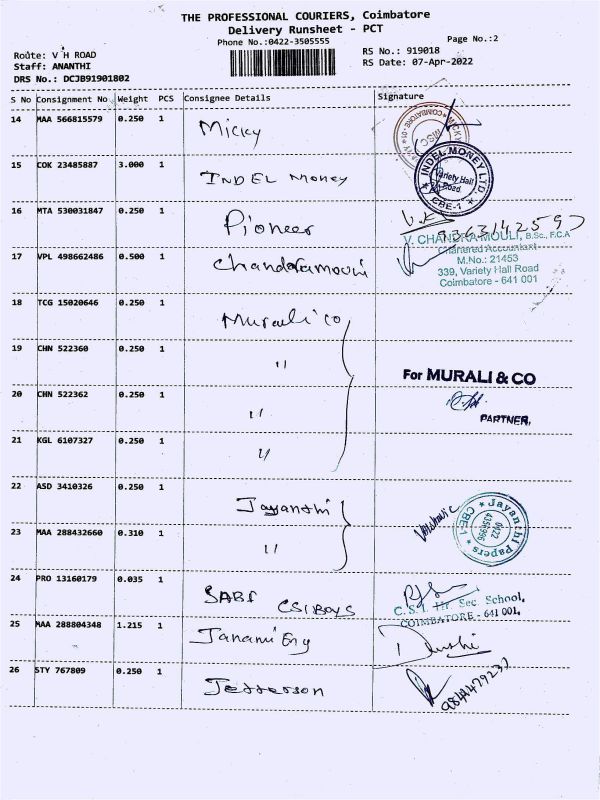 THE PROFESSIONAL COURIERS, Coimbatore
Delivery Runsheet - PCT
Phone No.:0422-3505555
Page No.:2
Route: V H ROAD
Staff: ANANTHI
DRS No.: DCJB91901802
RS No.: 919018
RS Date: 07-Apr-2022
S No Consignment No Weight PCS Consignee Details Signature
14 MAA 566815579 0.250 1 Micky
COIMBATORE
MICKY
MSC
15 COK 23485887 3.000 1 INDEL MONEY
INDEL MONEY LTD.
Variety Hall
Road
CBE-1
16 MTA 530031847 0.250 1 Pioneer
9363142597
17 VPL 498662486 0.500 1 Chandramouli
V. CHANDRA MOULI, B.Sc., F.C.A
Chartered Accountant
M.No.: 21453
339, Variety Hall Road
Coimbatore - 641 001
18 TCG 15020646 0.250 1 Murali co
19 CHN 522360 0.250 1 "
For MURALI & CO
20 CHN 522362 0.250 1 "
PARTNER.
21 KGL 6107327 0.250 1 "
22 ASD 3410326 0.250 1 Jayanthi
Jayanthi Papers
0422
CBE-1
23 MAA 288432660 0.310 1 "
24 PRO 13160179 0.035 1 SABS CSI BOYS
C.S.I. Hr. Sec. School,
COIMBATORE - 641 001.
25 MAA 288804348 1.215 1 Janani Eng
26 STY 767809 0.250 1 Jefferson